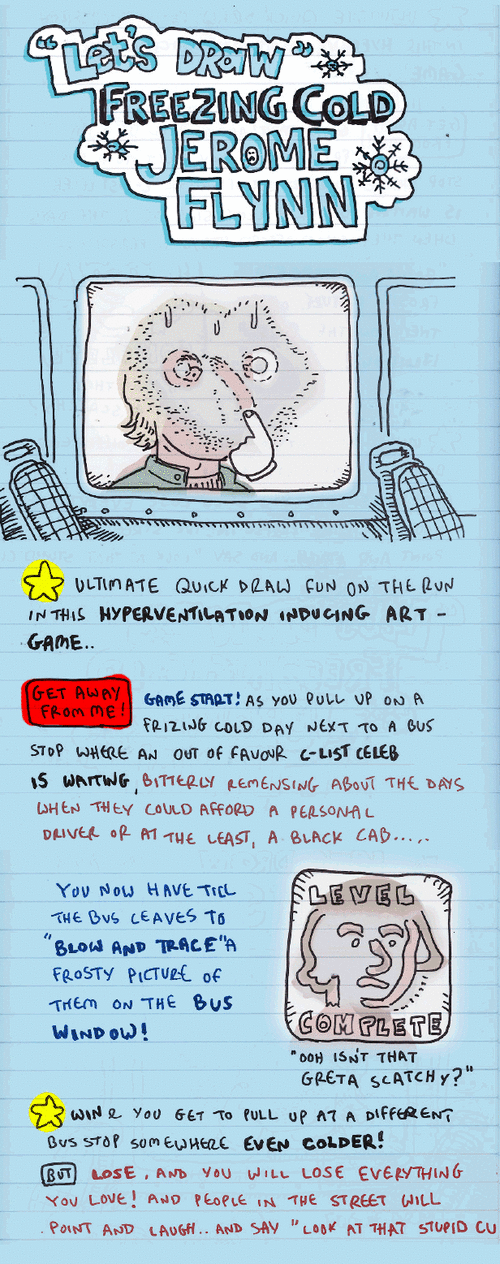 "LET'S DRAW"
FREEZING COLD
JEROME
FLYNN
ULTIMATE QUICK DRAW FUN ON THE RUN
IN THIS HYPERVENTILATION INDUCING ART -
GAME..
GET AWAY
FROM ME!
GAME START! AS YOU PULL UP ON A
FRIZING COLD DAY NEXT TO A BUS
STOP WHERE AN OUT OF FAVOUR C-LIST CELEB
IS WAITING, BITTERLY REMENSING ABOUT THE DAYS
WHEN THEY COULD AFFORD A PERSONAL
DRIVER OR AT THE LEAST, A BLACK CAB.....
YOU NOW HAVE TILL
THE BUS LEAVES TO
"BLOW AND TRACE" A
FROSTY PICTURE OF
THEM ON THE BUS
WINDOW!
LEVEL
COMPLETE
"OOH ISN'T THAT
GRETA SCATCHY?"
WIN & YOU GET TO PULL UP AT A DIFFERENT
BUS STOP SOMEWHERE EVEN COLDER!
BUT LOSE, AND YOU WILL LOSE EVERYTHING
YOU LOVE! AND PEOPLE IN THE STREET WILL
POINT AND LAUGH.. AND SAY "LOOK AT THAT STUPID CU